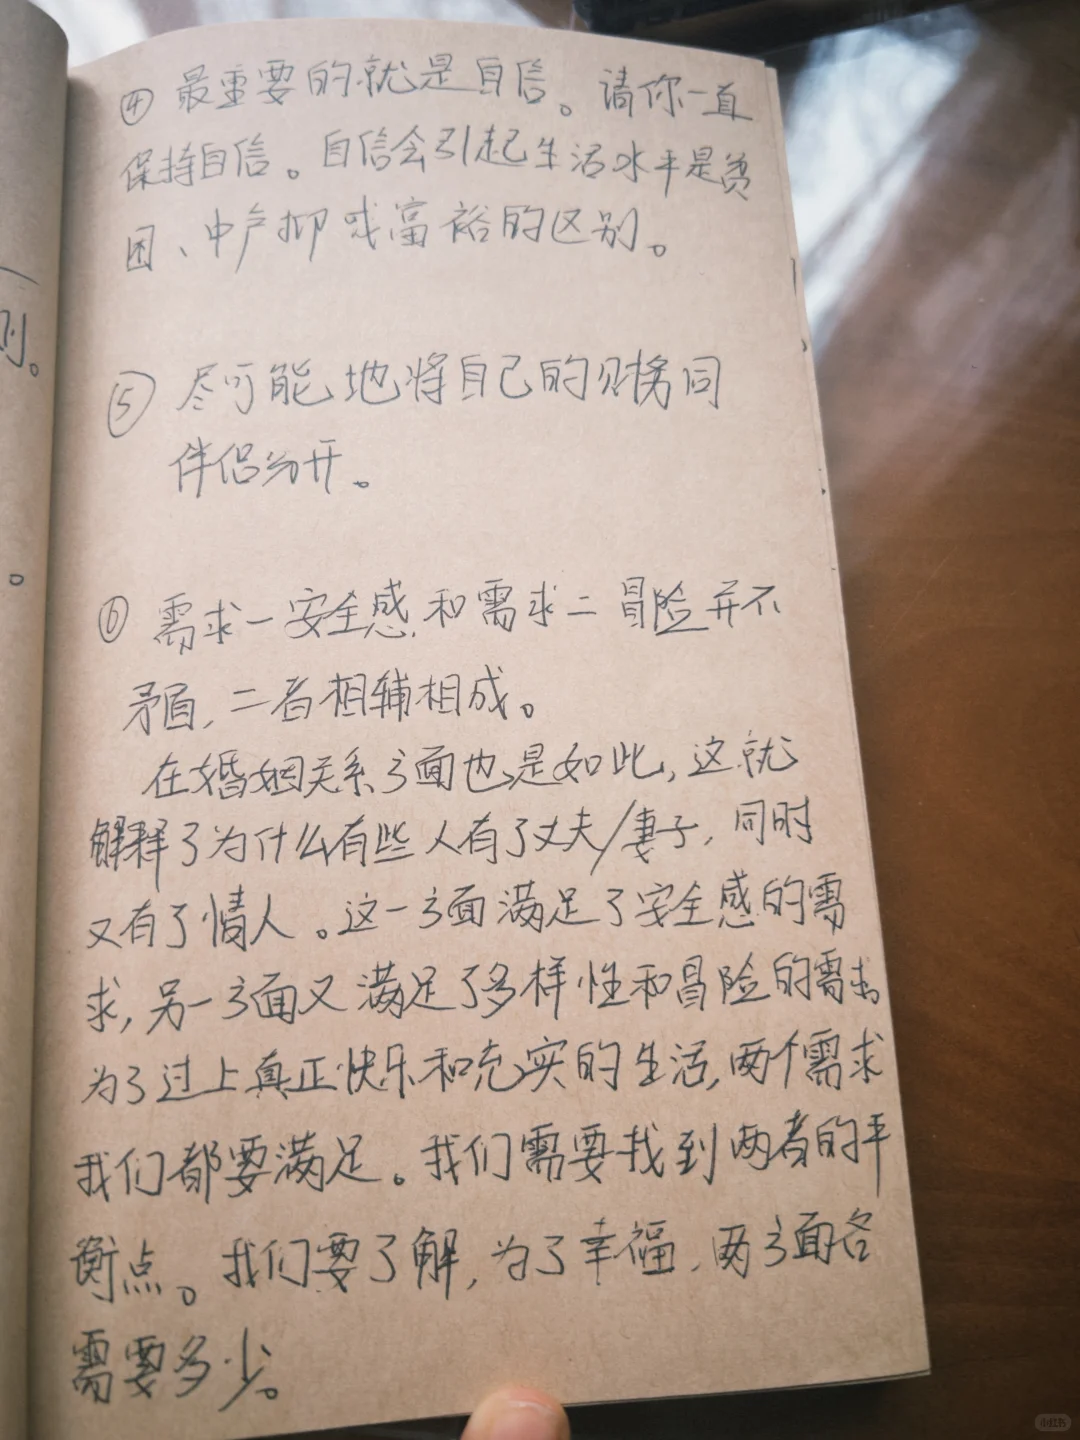 ④ 最重要的就是自信。请你一直
保持自信。自信会引起生活水平是贫
困、中产抑或富裕的区别。
⑤ 尽可能地将自己的财务同
伴侣分开。
⑥ 需求一安全感和需求二冒险并不
矛盾,二者相辅相成。
在婚姻关系方面也是如此,这就
解释了为什么有些人有了丈夫/妻子,同时
又有了情人。这一方面满足了安全感的需
求,另一方面又满足了多样性和冒险的需求。
为了过上真正快乐和充实的生活,两个需求
我们都要满足。我们需要找到两者的平
衡点。我们要了解,为了幸福,两方面各
需要多少。
则。
。